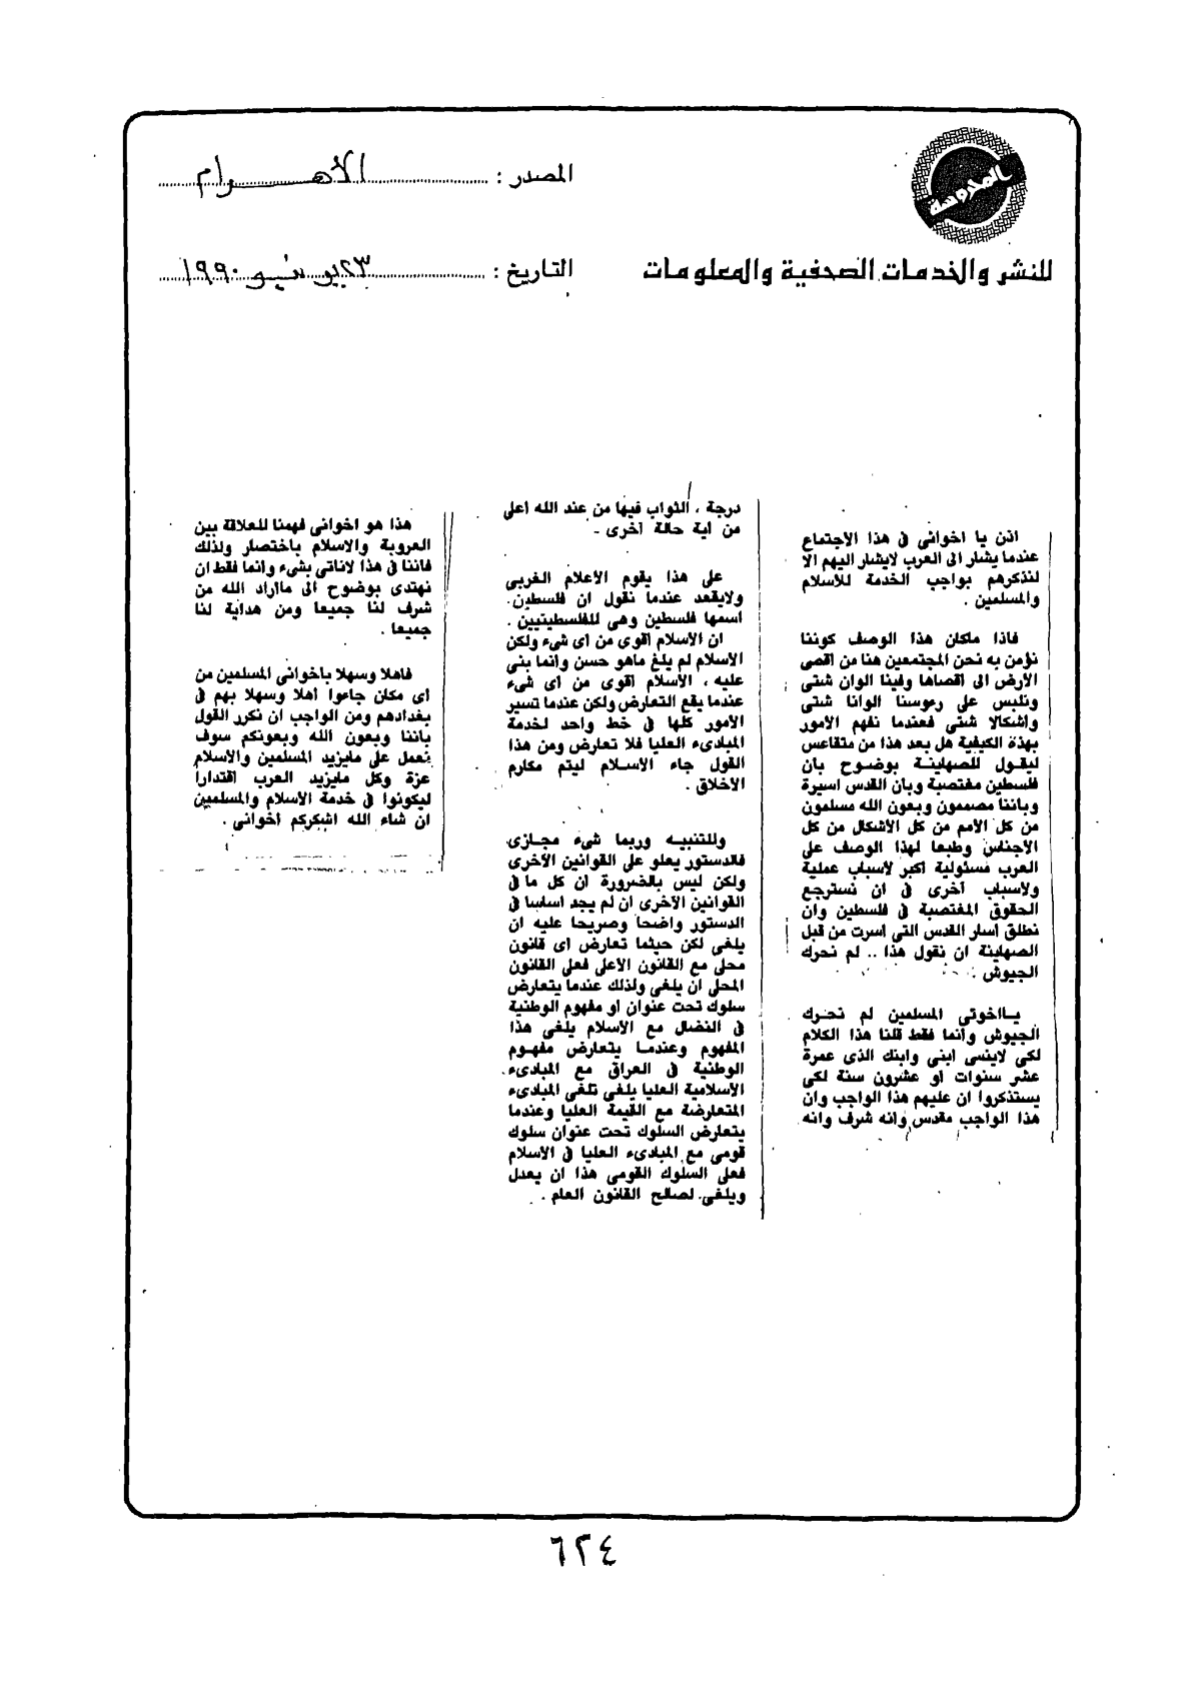 المحروسة
للنشر والخدمات الصحفية والمعلومات
المصدر : الأهـــرام
التاريخ : ٢٣ يونيو ١٩٩٠
اذن يا اخوانى فى هذا الاجتماع
عندما يشار الى العرب لايشار اليهم الا
لنذكرهم بواجب الخدمة للاسلام
والمسلمين .
فاذا ماكان هذا الوصف كوننا
نؤمن به نحن المجتمعين هنا من اقصى
الارض الى اقصاها وفينا الوان شتى
ونلبس على رءوسنا الوانا شتى
واشكالا شتى فعندما نفهم الامور
بهذة الكيفية هل بعد هذا من متقاعس
ليقول للصهاينة بوضوح بان
فلسطين مغتصبة وبان القدس اسيرة
وباننا مصممون وبعون الله مسلمون
من كل الامم من كل الاشكال من كل
الاجناس وطبعا لهذا الوصف على
العرب مسئولية اكبر لاسباب عملية
ولاسباب اخرى فى ان نسترجع
الحقوق المغتصبة فى فلسطين وان
نطلق اسار القدس التى اسرت من قبل
الصهاينة ان نقول هذا .. لم نحرك
الجيوش .
يااخوتى المسلمين لم نحرك
الجيوش وانما فقط قلنا هذا الكلام
لكى لاينسى ابنى وابنك الذى عمرة
عشر سنوات او عشرون سنة لكى
يستذكروا ان عليهم هذا الواجب وان
هذا الواجب مقدس وانه شرف وانه
درجة ، الثواب فيها من عند الله اعلى
من اية حالة اخرى .
على هذا يقوم الاعلام الغربى
ولايقعد عندما نقول ان فلسطين
اسمها فلسطين وهى للفلسطينيين .
ان الاسلام اقوى من اى شىء ولكن
الاسلام لم يلغ ماهو حسن وانما بنى
عليه ، الاسلام اقوى من اى شىء
عندما يقع التعارض ولكن عندما تسير
الامور كلها فى خط واحد لخدمة
المبادىء العليا فلا تعارض ومن هذا
القول جاء الاسلام ليتم مكارم
الاخلاق .
وللتنبيه وربما شىء مجازى
فالدستور يعلو على القوانين الاخرى
ولكن ليس بالضرورة ان كل ما فى
القوانين الاخرى ان لم يجد اساسا فى
الدستور واضحا وصريحا عليه ان
يلغى لكن حيثما تعارض اى قانون
محلى مع القانون الاعلى فعلى القانون
المحلى ان يلغى ولذلك عندما يتعارض
سلوك تحت عنوان او مفهوم الوطنية
فى النضال مع الاسلام يلغى هذا
المفهوم وعندما يتعارض مفهوم
الوطنية فى العراق مع المبادىء
الاسلامية العليا يلغى تلغى المبادىء
المتعارضة مع القيمة العليا وعندما
يتعارض السلوك تحت عنوان سلوك
قومى مع المبادىء العليا فى الاسلام
فعلى السلوك القومى هذا ان يعدل
ويلغى لصالح القانون العام .
هذا هو اخوانى فهمنا للعلاقة بين
العروبة والاسلام باختصار ولذلك
فاننا فى هذا لاناتى بشىء وانما فقط ان
نهتدى بوضوح الى مااراد الله من
شرف لنا جميعا ومن هداية لنا
جميعا .
فاهلا وسهلا باخوانى المسلمين من
اى مكان جاءوا اهلا وسهلا بهم فى
بغدادهم ومن الواجب ان نكرر القول
باننا وبعون الله وبعونكم سوف
نعمل على مايزيد المسلمين والاسلام
عزة وكل مايزيد العرب اقتدارا
ليكونوا فى خدمة الاسلام والمسلمين
ان شاء الله اشكركم اخوانى .
٦٢٤